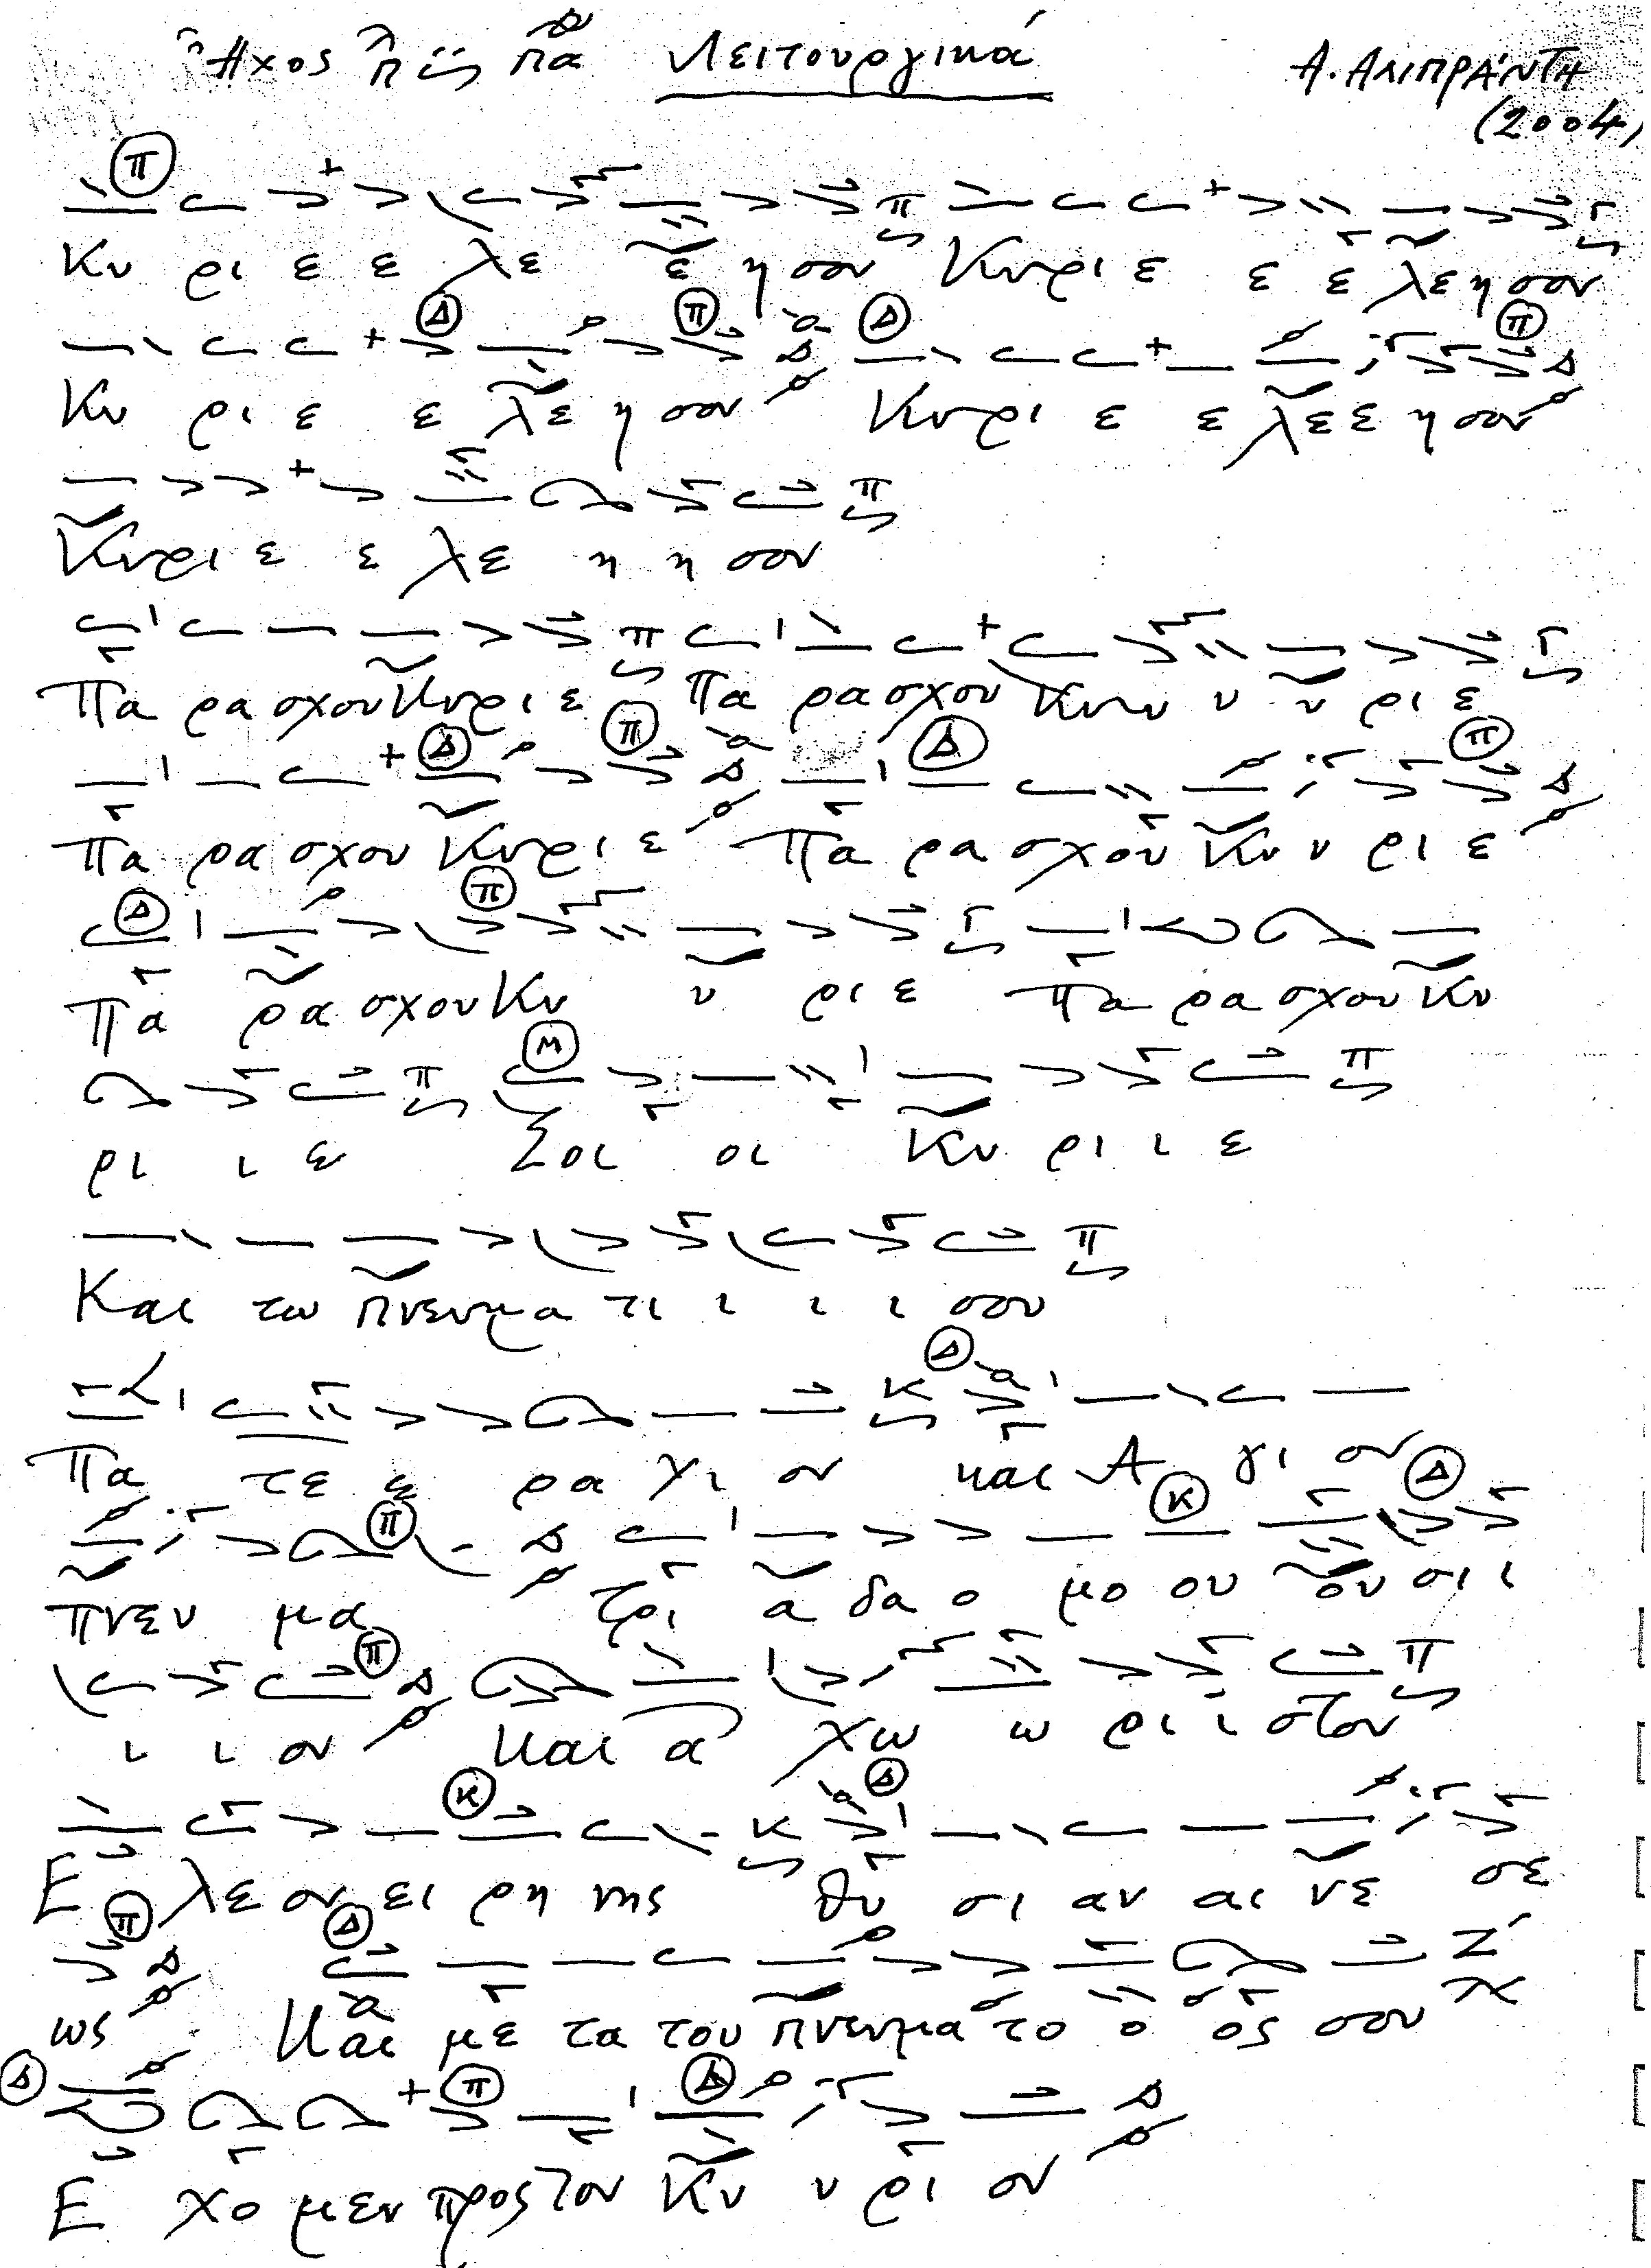 Ἦχος λ π ϛ πα Λειτουργικά Α. ΑΛΙΠΡΆΝΤΗ
(2004)
Π
Κυ ρι ε ε λε ε η σον Κυρι ε ε ε λεησον
Δ Π Δ Π
Κυ ρι ε ε λε η σον Κυρι ε ε λεε η σον
Κυρι ε ε λε η η σον
Πα ρα σχου Κυρι ε Πα ρα σχου Κυυ υ υ ρι ε
Δ Π Δ Π
Πα ρα σχου Κυρι ε Πα ρα σχου Κυ υ ρι ε
Δ Π
Πα ρα σχου Κυ υ ρι ε Πα ρα σχου Κυ
Μ
ρι ι ε Σοι οι Κυ ρι ι ε
Και τω πνευμα τι ι ι ι σου
Δ
Πα τε ε ρα Υι ον και Α γι ον
Π Κ Δ
πνευ μα τρι α δα ο μο ου ου σι ι
Π
ι ι ον και α χω ω ρι ι στον
Κ Δ
Ε λε ον ει ρη νης θυ σι αν αι νε σε
Π Δ
ως Και με τα του πνευμα το ο ος σου
Δ Π Δ
Ε χο μεν προς τον Κυ υ ρι ον